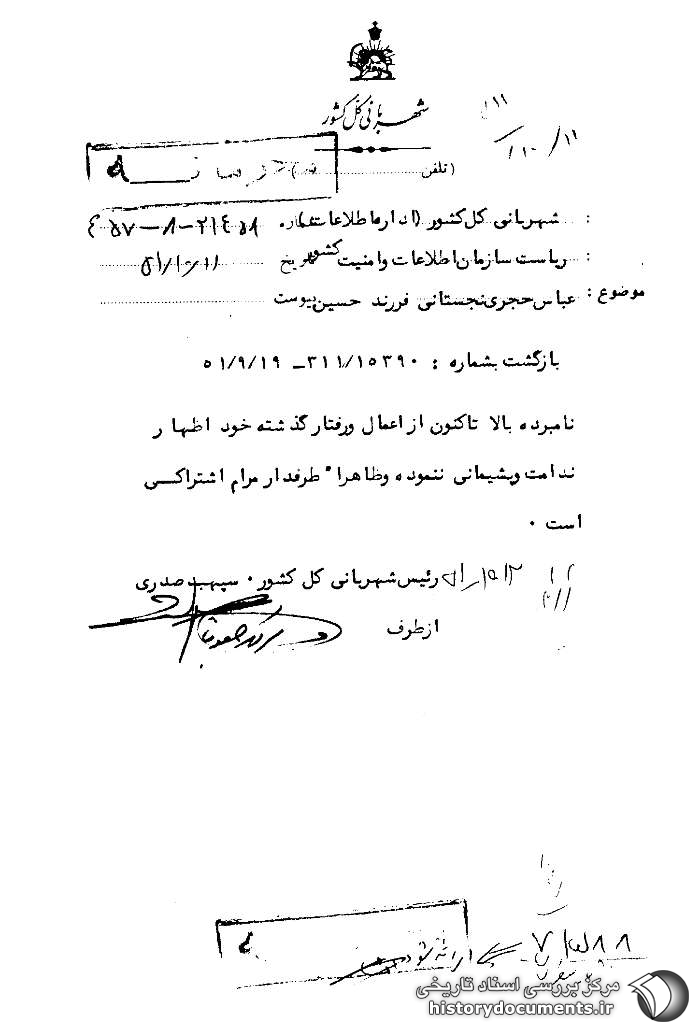 شهربانی کل کشور
محرمانه
(تلفن ............)
: شهربانی کل کشور (اداره اطلاعات) شماره
: ریاست سازمان اطلاعات و امنیت کشور تاریخ
موضوع : عباس حجری نجستانی فرزند حسین پیوست
بازگشت بشماره : ۳۱۱/۱۵۳۹۰ - ۵۱/۹/۱۹
نامبرده بالا تاکنون از اعمال و رفتار گذشته خود اظهار
ندامت و پشیمانی ننموده و ظاهرا" طرفدار مرام اشتراکی
است .
رئیس شهربانی کل کشور . سپهبد صدری
از طرف
ارائه شود
مرکز بررسی اسناد تاریخی
historydocuments.ir